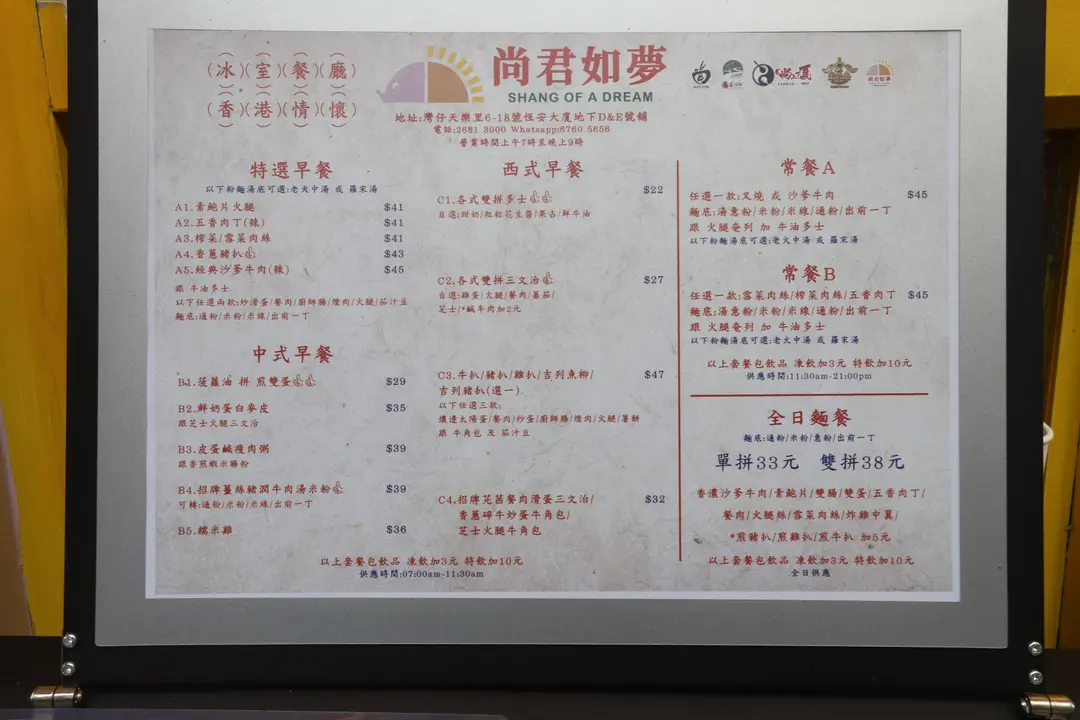 冰室餐廳
香港情懷
尚君如夢
SHANG OF A DREAM
地址:灣仔天樂里6-18號恆安大廈地下D&E號舖
電話:2681 3000 Whatsapp:6760 5656
營業時間上午7時至晚上9時
特選早餐
以下粉麵湯底可選:老火中湯 或 羅宋湯
A1.素鮑片火腿 $41
A2.五香肉丁(辣) $41
A3.榨菜/雪菜肉絲 $41
A4.香蔥豬扒 $43
A5.經典沙爹牛肉(辣) $45
跟 牛油多士
以下任選兩款:炒滑蛋/餐肉/廚師腸/煙肉/火腿/茄汁豆
麵底:通粉/米粉/米線/出前一丁
中式早餐
B1.菠蘿油 拼 煎雙蛋 $29
B2.鮮奶蛋白麥皮 $35
跟芝士火腿三文治
B3.皮蛋鹹瘦肉粥 $39
跟香煎蝦米腸粉
B4.招牌薑絲豬潤牛肉湯米粉 $39
可轉:通粉/米粉/米線/出前一丁
B5.糯米雞 $36
西式早餐
C1.各式雙拼多士 $22
自選:甜奶/粒粒花生醬/果占/鮮牛油
C2.各式雙拼三文治 $27
自選:雞蛋/火腿/餐肉/蕃茄/
芝士/*鹹牛肉加2元
C3.牛扒/豬扒/雞扒/吉列魚柳/ $47
吉列豬扒(選一)
以下任選三款:
燶邊太陽蛋/餐肉/炒蛋/廚師腸/煙肉/火腿/薯餅
跟 牛角包 及 茄汁豆
C4.招牌芫茜餐肉滑蛋三文治/ $32
香蔥碎牛炒蛋牛角包/
芝士火腿牛角包
以上套餐包飲品 凍飲加3元 特飲加10元
供應時間:07:00am-11:30am
常餐A
任選一款:叉燒 或 沙爹牛肉 $45
麵底:湯意粉/米粉/米線/通粉/出前一丁
跟 火腿奄列 加 牛油多士
以下粉麵湯底可選:老火中湯 或 羅宋湯
常餐B
任選一款:雪菜肉絲/榨菜肉絲/五香肉丁 $45
麵底:湯意粉/米粉/米線/通粉/出前一丁
跟 火腿奄列 加 牛油多士
以下粉麵湯底可選:老火中湯 或 羅宋湯
以上套餐包飲品 凍飲加3元 特飲加10元
供應時間:11:30am-21:00pm
全日麵餐
麵底:通粉/米粉/意粉/出前一丁
單拼33元 雙拼38元
香濃沙爹牛肉/素鮑片/雙腸/雙蛋/五香肉丁/
餐肉/火腿絲/雪菜肉絲/炸雞中翼/
*煎豬扒/煎雞扒/煎牛扒 加5元
以上套餐包飲品 凍飲加3元 特飲加10元
全日供應